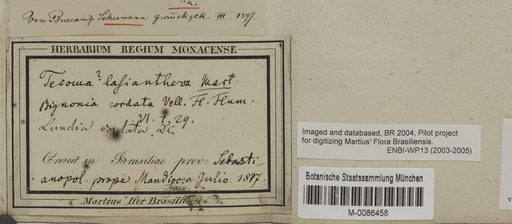 Von Bureau & Schumann zurückgek. III. 1897.
HERBARIUM REGIUM MONACENSE.
Tecoma? lasianthera Mart.
Bignonia cordata Vell. Fl. Flum.
VI. t. 29.
Lundia cordata. DC.
Crescit in Brasiliae prov: Sebasti-
anopol. prope Mandiocca Julio. 1817.
Martius Iter Brasiliense.
Imaged and databased, BR 2004, Pilot project
for digitizing Martius' Flora Brasiliensis.
ENBI-WP13 (2003-2005)
Botanische Staatssammlung München
M-0086458